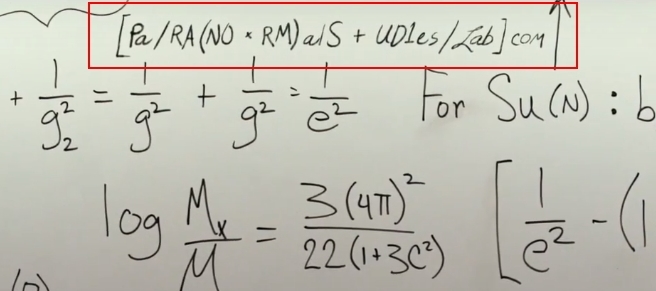 [Pa/RA(NO × RM)alS + UD1es/Lab]com
+ 1/g₂² = 1/g² + 1/g² = 1/e² For Su(N) : b
log Mₓ/M = 3(4π)²/22(1+3C²) [1/e² - (1